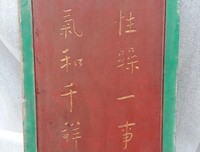 性躁一事
氣和千祥